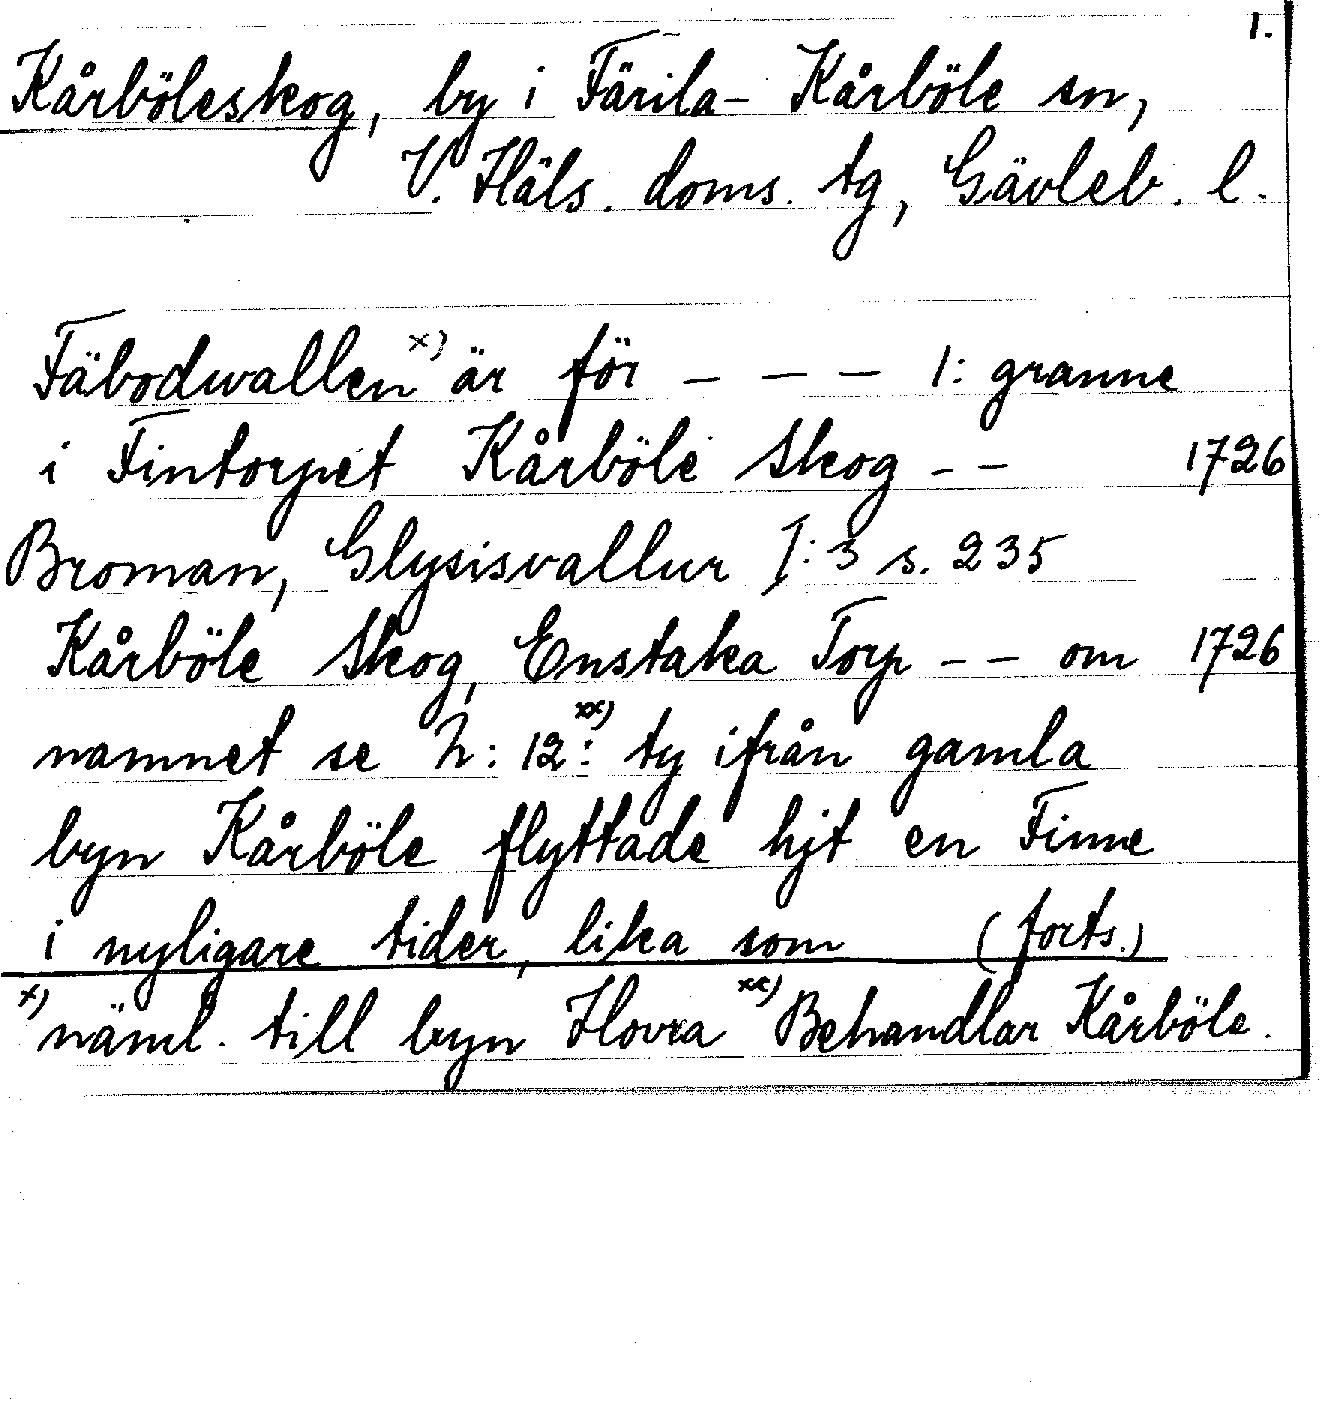 1.
Kårböleskog, by i Färila-Kårböle sn,
V. Häls. doms. tg, Gävleb. l.
Fäbodwallen x) är för - - - 1: granne
i Fintorpet Kårböle Skog - - 1726
Broman, Glysisvallur I:3 s. 235
Kårböle Skog, Enstaka Torp - - om 1726
namnet se h: 12: xx) ty ifrån gamla
byn Kårböle flyttade hjt en Finne
i nyligare tider, lika som (forts.)
x) näml. till byn Hovra xx) Behandlar Kårböle.